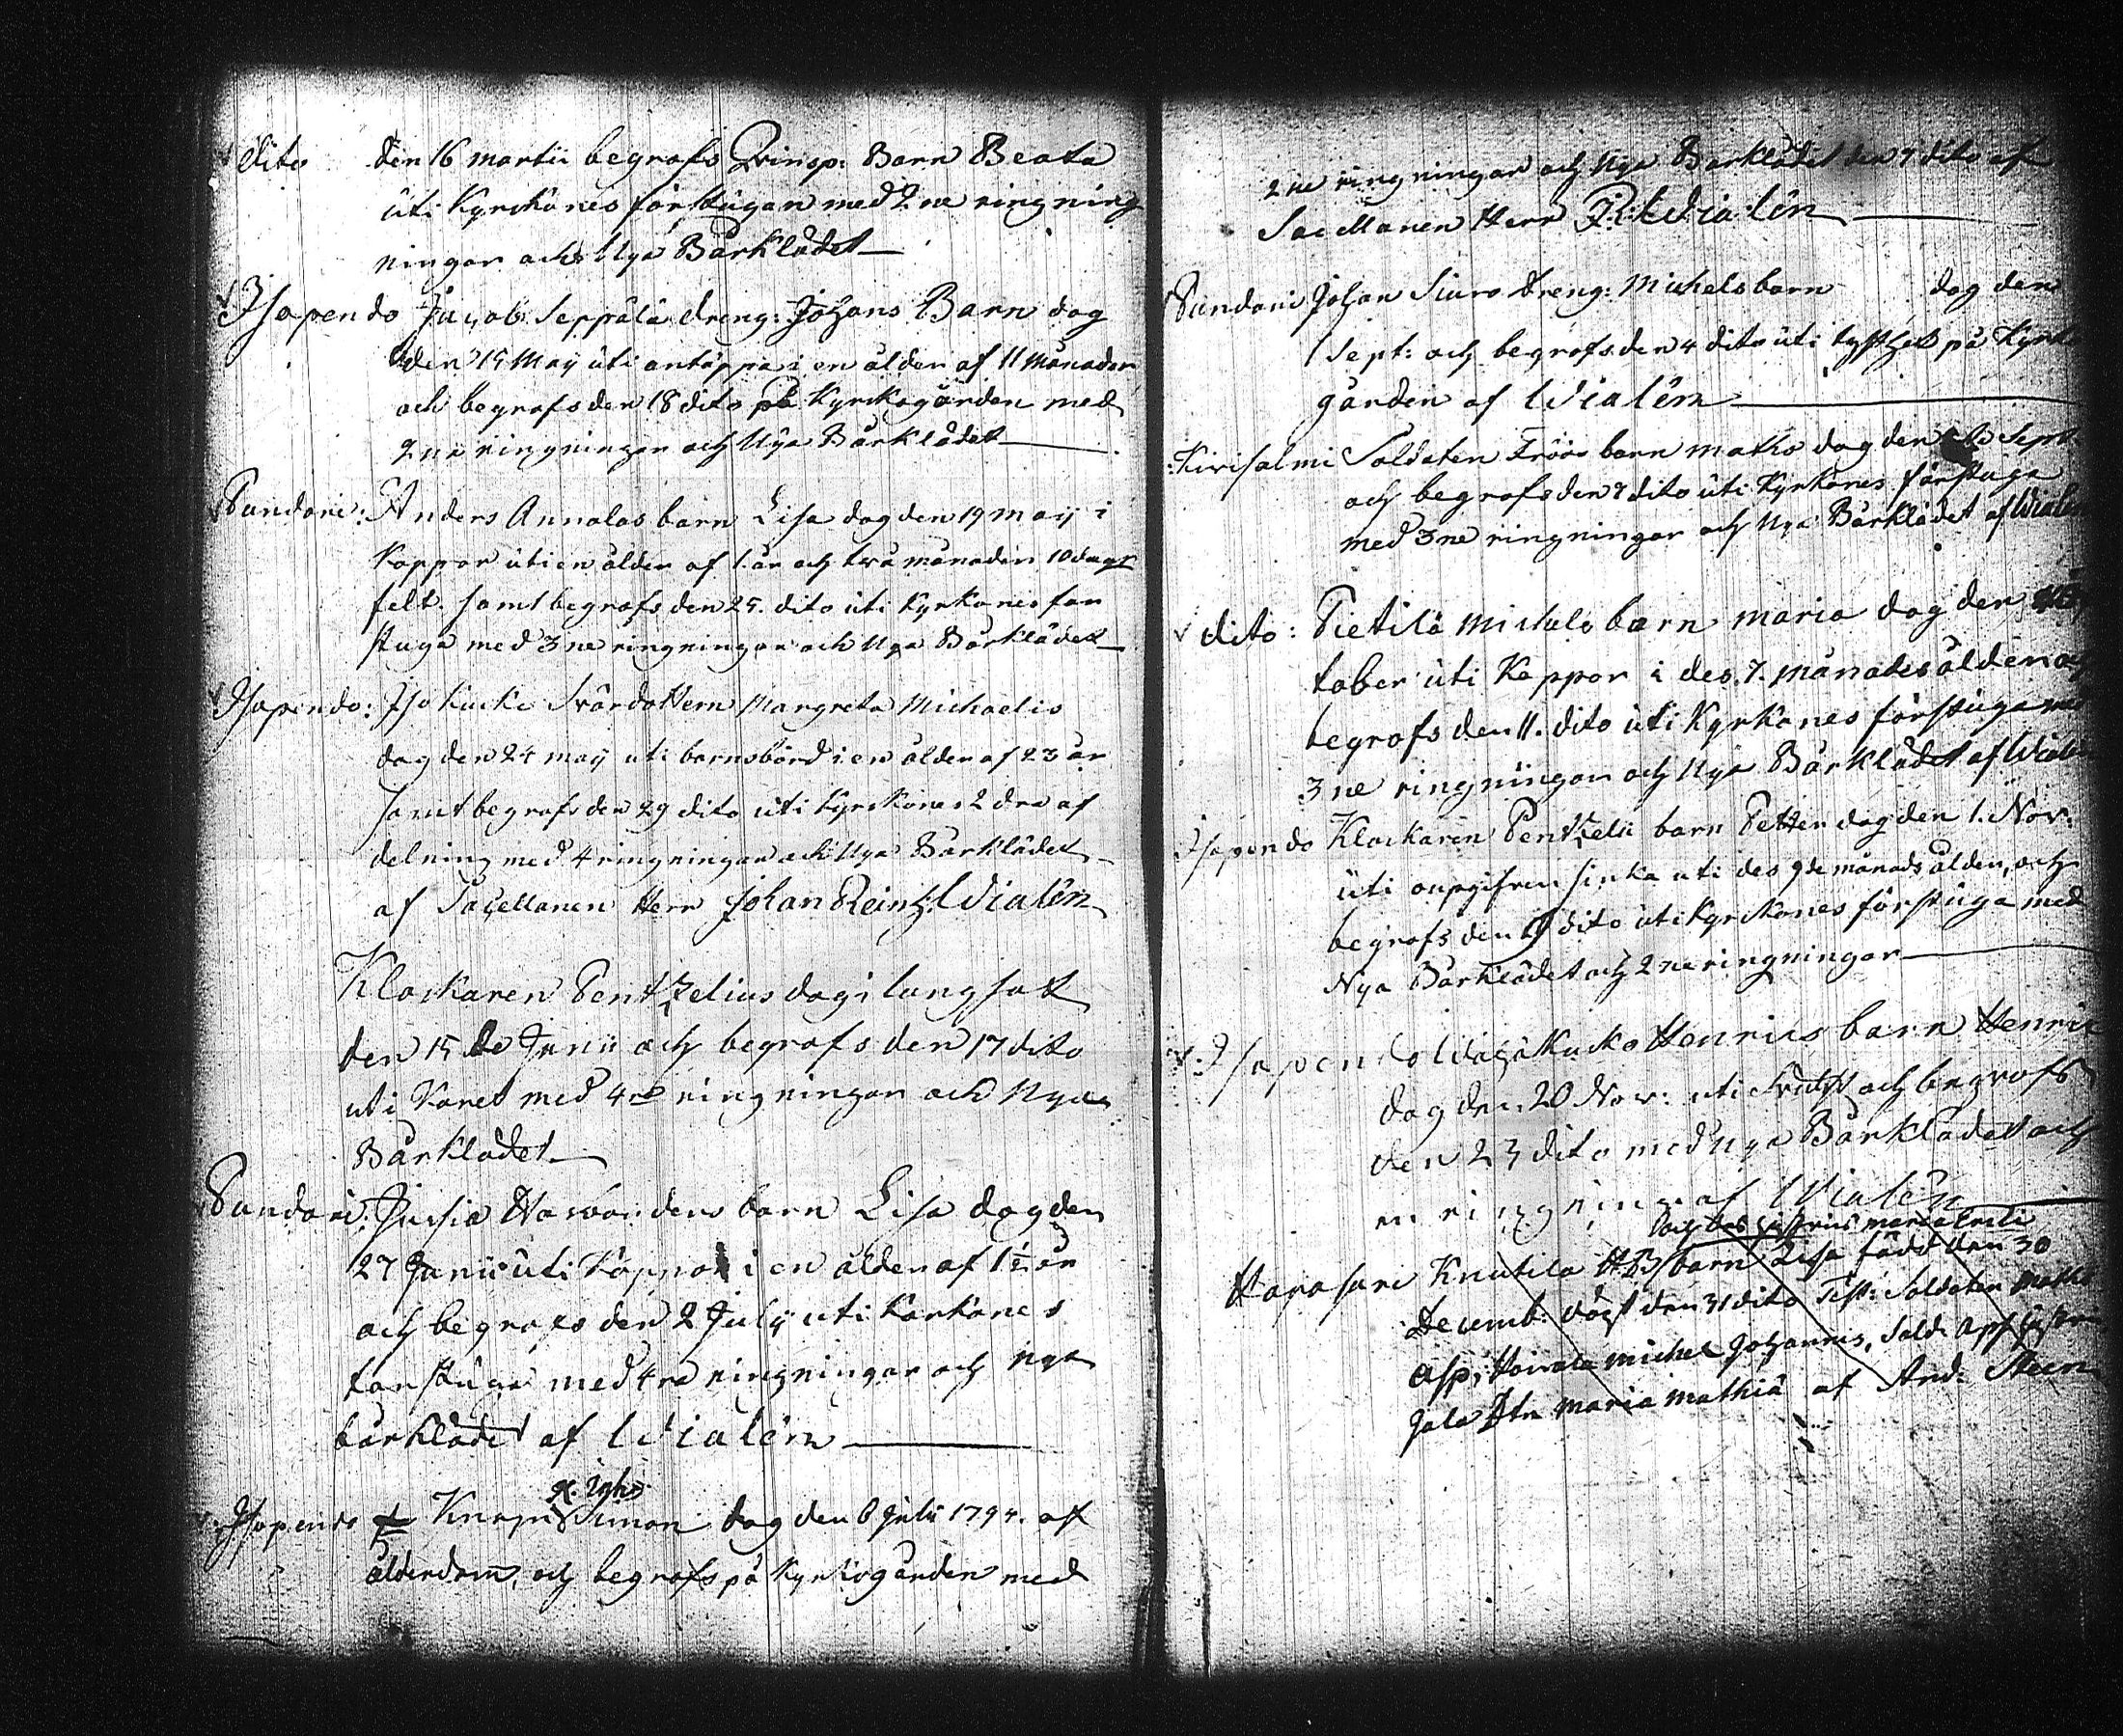 dito den 16 martii begrofs Qvinsp: Barn Beata
uti Kyrckones förstugan med 2ne ringning
ningar och Nya Bårklädet
Isopendo Jacob Seppälä dreng: Johans Barn dog
den 15 Maij uti antäppa i en ålder af 11 månader
och begrofs den 18 dito på Kyrckogården med
2ne ringningar och Nya Bårklädet
Pundari: Anders Annalas barn Lisa dog den 19 maij i
Koppor uti en ålder af 1. år och två månader 10 dagr
felt. samt begrofs den 25. dito uti Kyrkones for
stuga med 3ne ringningar och Nya Bårklädet
Isopendo: Iso Kucki Svärdottern Margreta Michaelis
dog den 24 maij uti barnsbörd i en ålder af 23 år
samt begrofs den 29 dito uti Kyrckones 2 dra af
delning med 4 ringningar och Nya Bårklädet
af Sacellanen Herr Johan Reinh: Wialén
Klockaren Pentzelius dog i lungsot
den 15 de Junii och begrofs den 17 dito
uti Koret med 4ra ringningar och Nya
Bårklädet
Pundari: Jussia barn Lisa dog den
27 Junii uti Koppor i en ålder af 1½ år
och begrofs den 2 Julij uti Kørkones
forstuga med 4ra ringningar och nya
bårklädet af Wialén
Isopendo Simon dog den 6 Julii 1794. af
ålderdom, och begrofs på Kyrkogården med
2ne ringningar och Nya Bårklädet den 7 dito af
Sacellanen Herr J: R: Wialén
Pundari Johan Siuro dreng: Michels barn dog den
1 Sept: och begrofs den 4 dito uti tysthet på Kyrko
gården af Wialén
Kirisalmi Soldaten barn maths dog den Sept
och begrofs den 9 dito uti Kyrkones förstuga
med 3ne ringningar och Nya Bårklädet af Wialén
dito: Pietilä Michels barn maria dog den
tober uti Koppor i des. 7. månades ålder och
begrofs den 11. dito uti Kyrkones förstuga med
3ne ringningar och Nya Bårklädet af Wialén
Isopendo Klockaren Pentzelii barn Petter dog den 1. Nov:
uti oupgifven siuka uti des 9de månads ålder, och
begrofs den 9 dito uti Kyrckones förstuga med
Nya Bårklädet och 2ne ringningar
Isopendo Kucko Henrics barn Henric
dog den 20 Nov: uti och begrofs
den 23 dito med Nya Bårklädet och
en ringning af Wialén
maria
Harasari Knutila barn Lisa född den 30
Decemb: döpt den 31 dito Test: Soldaten Maths
Asp, michel Johannis, Sold:
maria mathiä af And: